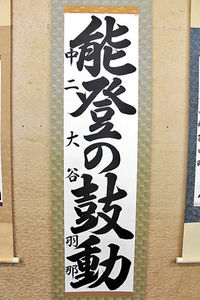 能登の鼓動
中二大谷羽那